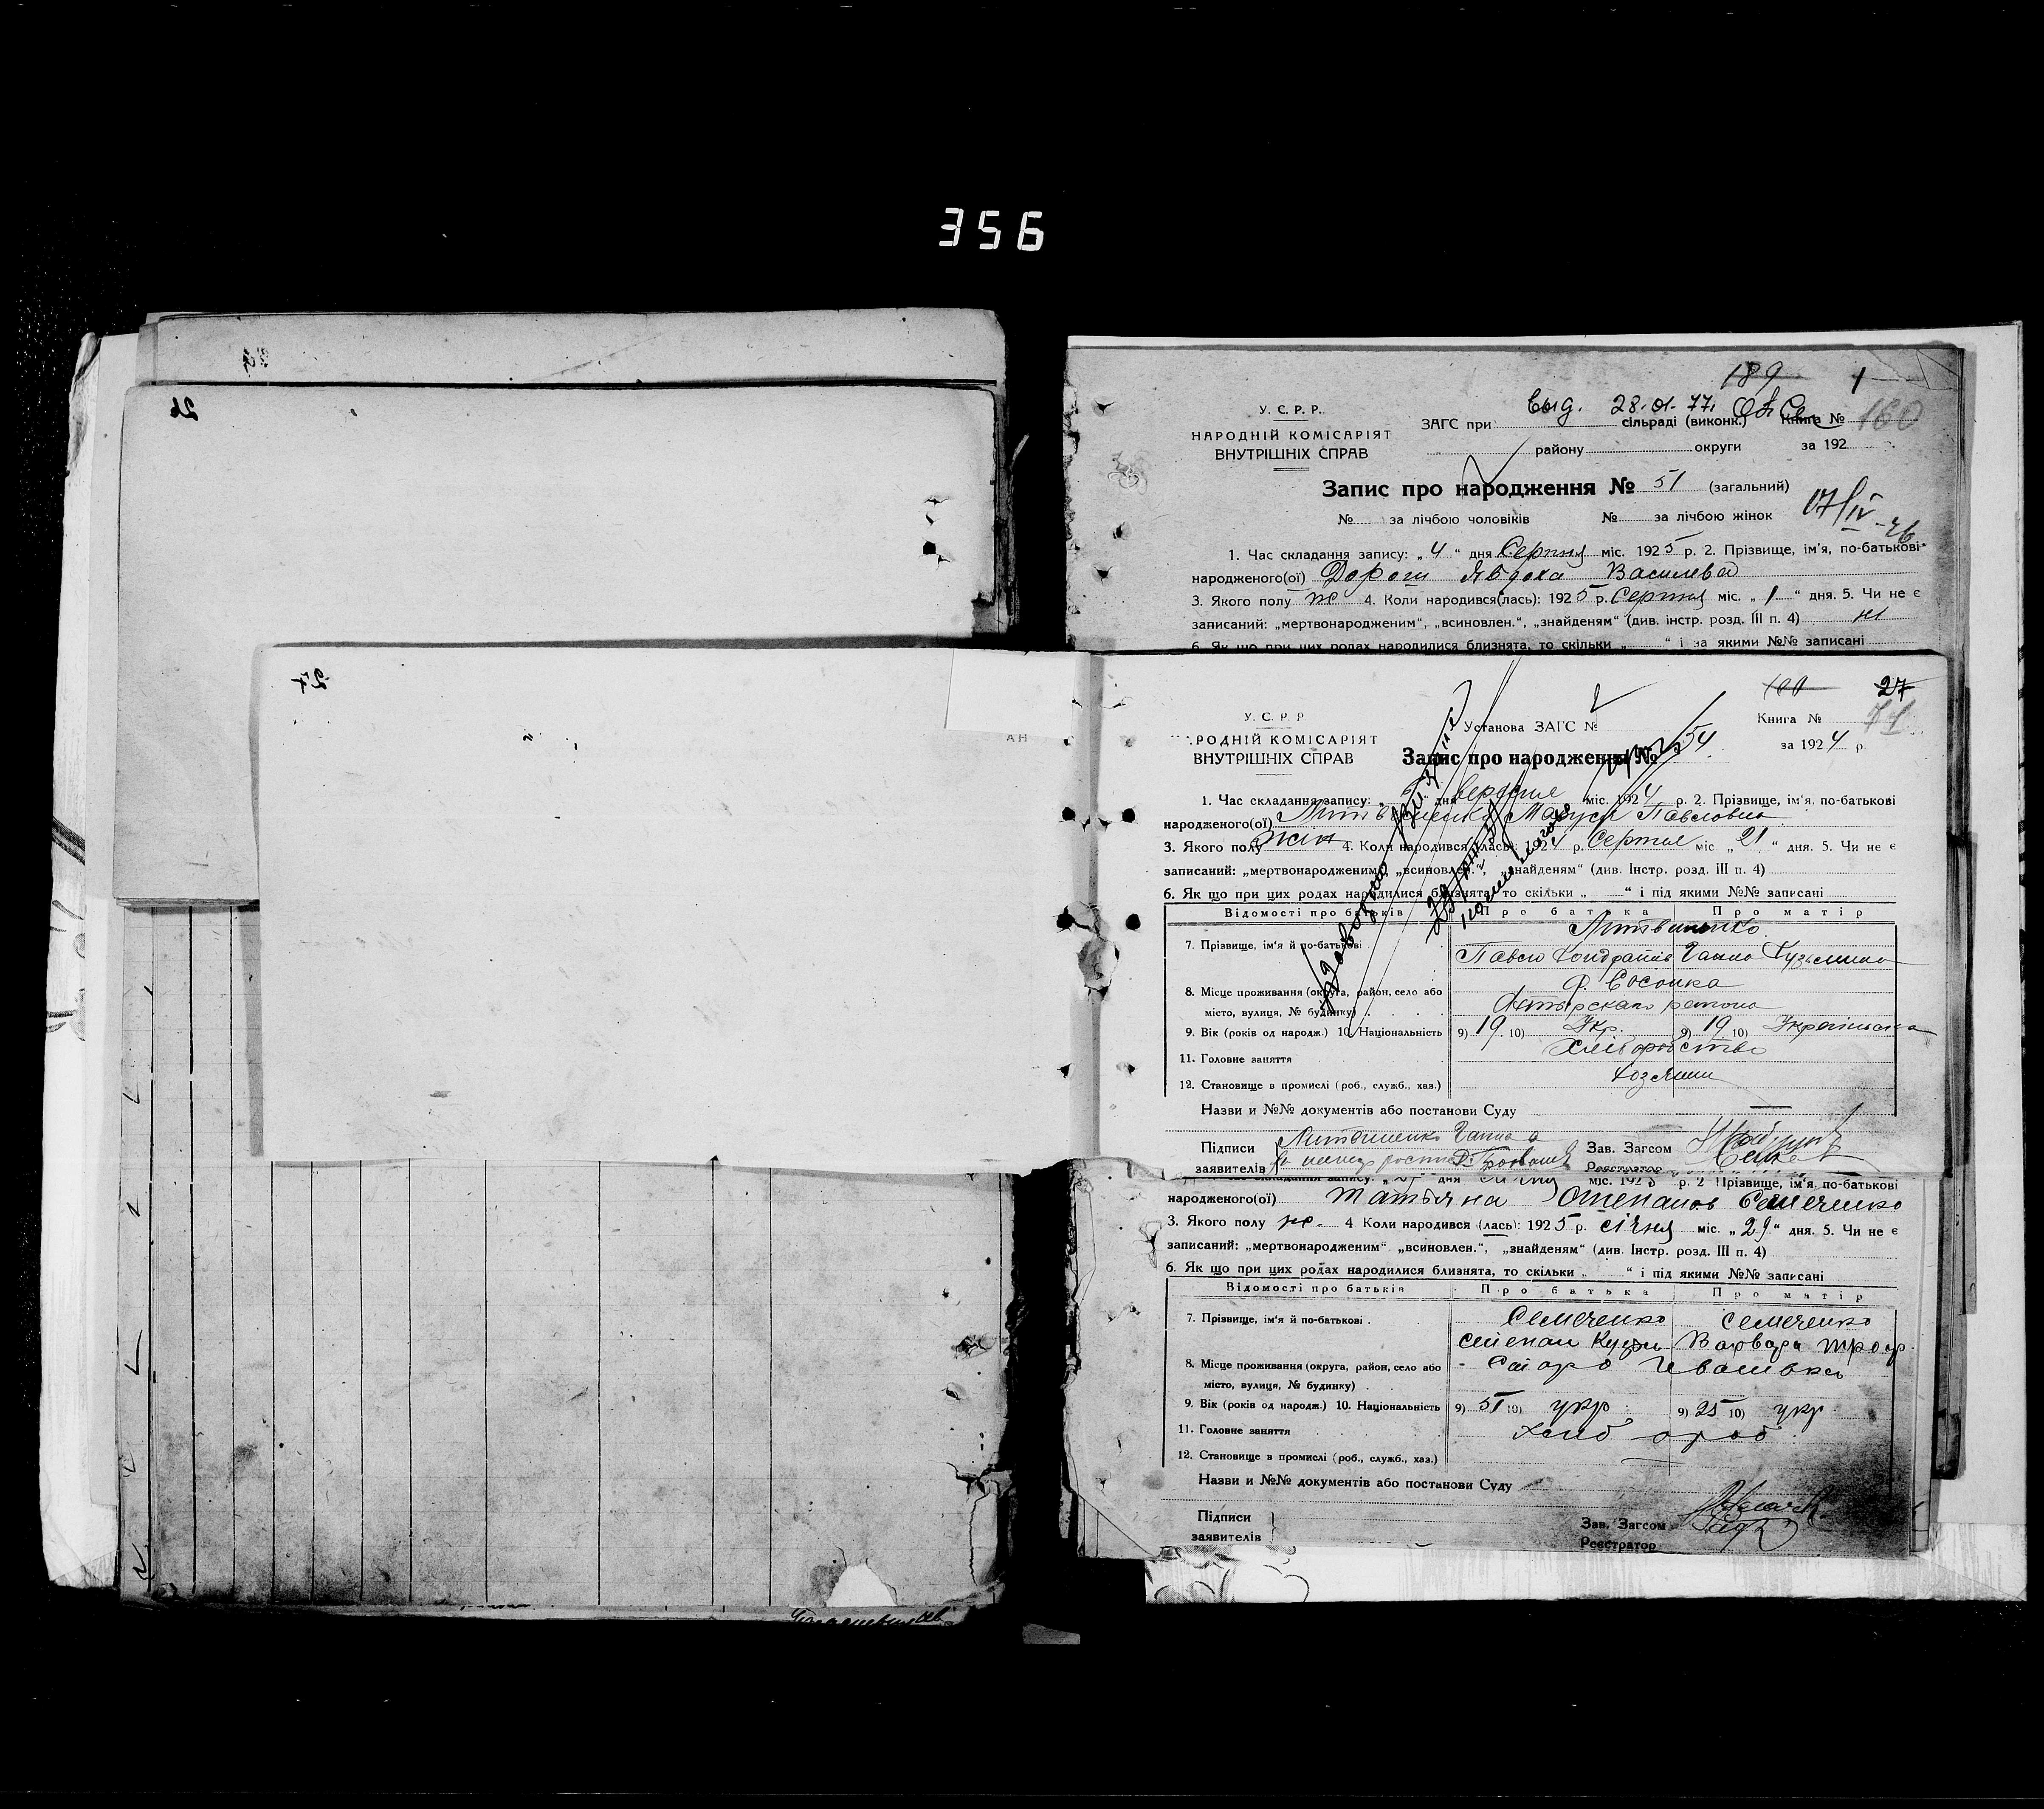 356
26
27
189 1
выд. 28.01.77.
У. С. Р. Р.
НАРОДНІЙ КОМІСАРІЯТ
ВНУТРІШНІХ СПРАВ
ЗАГС при сільраді (виконк.) Книга № 160
району округи за 192
Запис про народження № 51 (загальний)
№ за лічбою чоловіків № за лічбою жінок
17/IV-76
1. Час складання запису: „4“ дня Серпня міс. 1925 р. 2. Прізвище, ім'я, по-батькові
народженого(ої) Дорош Явдоха Василева
3. Якого полу ж 4. Коли народився(лась): 1925 р. Серпня міс. „1“ дня. 5. Чи не є
записаний: „мертвонародженим“, „всиновлен.“, „знайденям“ (див. інстр. розд. III п. 4) ні
6. Як що при цих родах народилися близнята, то скільки „ “ і за якими №№ записані
100 27
У. С. Р. Р
РОДНІЙ КОМІСАРІЯТ
ВНУТРІШНІХ СПРАВ
АН
Установа ЗАГС №
Книга № 71
Запис про народження № 54
за 1924 р.
1. Час складання запису: „ “ дня вересня міс. 1924 р. 2. Прізвище, ім'я, по-батькові
народженого(ої) Литвиненко Маруся Павловна
3. Якого полу жін 4. Коли народився (лась): 1924 р. Серпня міс „21“ дня. 5. Чи не є
записаний: „мертвонародженим“, „всиновлен.“, „знайденям“ (див. Інстр. розд. III п. 4)
6. Як що при цих родах народилися близнята, то скільки „ “ і під якими №№ записані
Відомості про батьків Про батька Про матір
Литвиненко
7. Прізвище, ім'я й по-батькові Павло Кондратів Ганна Кузьмина
8. Місце проживання (округа, район, село або х. Сосонка
місто, вулиця, № будинку)
9. Вік (років од народж.) 10. Національність 9) 19 10) Укр. 9) 19 10) Українська
11. Головне заняття Хліборобство
12. Становище в промислі (роб., служб., хаз.) Хозяини
Назви и №№ документів або постанови Суду
Підписи Литвиненко Ганна Зав. Загсом
заявителів Реєстратор
1. Час складання запису: „ “ дня січня міс. 1925 р. 2 Прізвище, ім'я, по-батькові
народженого(ої) Татьяна Степанов Семеченко
3. Якого полу ж. 4 Коли народився (лась): 1925 р. січня міс. „29“ дня. 5. Чи не є
записаний: „мертвонародженим“ „всиновлен.“, „знайденям“ (див. Інстр. розд. III п. 4)
6. Як що при цих родах народилися близнята, то скільки „ “ і під якими №№ записані
Відомості про батьків Про батька Про матір
7. Прізвище, ім'я й по-батькові Семеченко Семеченко
Степан Кузьм Варвара Трофр
8. Місце проживання (округа, район, село або Старо Івановка
місто, вулиця, № будинку)
9. Вік (років од народж.) 10. Національність 9) 51 10) укр 9) 25 10) укр
11. Головне заняття Хліб ороб
12. Становище в промислі (роб., служб., хаз.)
Назви и №№ документів або постанови Суду
Підписи
заявителів
Зав. Загсом
Реєстратор